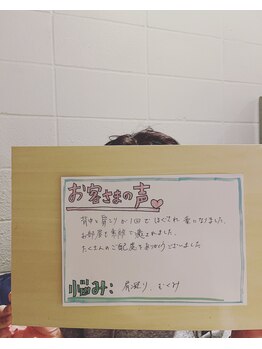 お客さまの声
背中と肩こりが1回でほぐされ、楽になりました。
お部屋も素敵で癒されました。
たくさんのご配慮をありがとうございました
悩み：肩凝り、むくみ